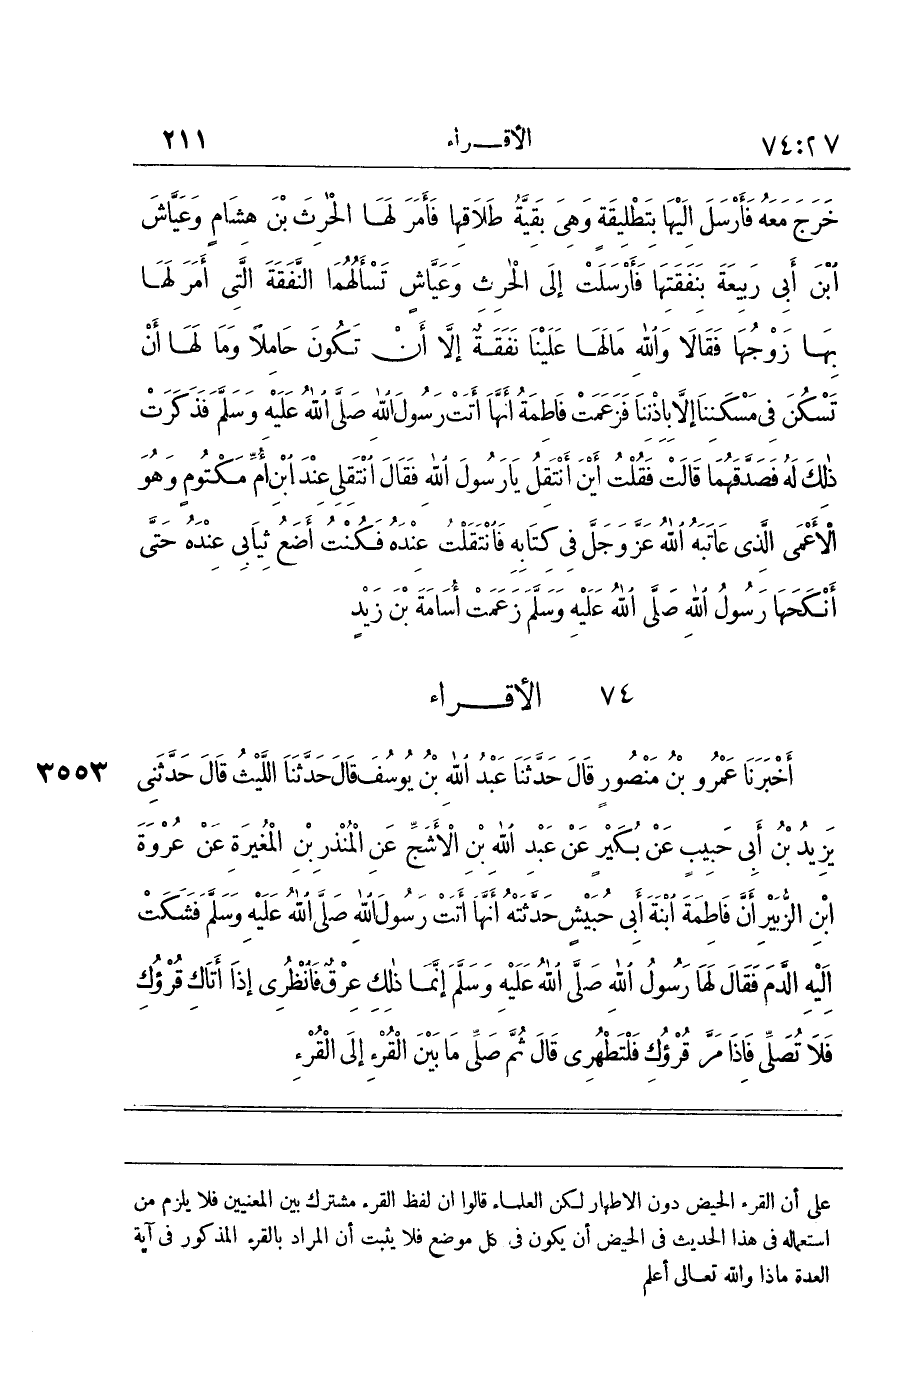 ٧٤:٢٧ الأقـــراء ٢١١
خَرَجَ مَعَهُ فَأَرْسَلَ إِلَيْهَا بِتَطْلِيقَةٍ وَهِيَ بَقِيَّةُ طَلَاقِهَا فَأَمَرَ لَهَا الْحٰرِثَ بْنَ هِشَامٍ وَعَيَّاشَ
ابْنَ أَبِي رَبِيعَةَ بِنَفَقَتِهَا فَأَرْسَلَتْ إِلَى الْحٰرِثِ وَعَيَّاشٍ تَسْأَلُهُمَا النَّفَقَةَ الَّتِي أَمَرَ لَهَا
بِهَا زَوْجُهَا فَقَالَا وَاللهِ مَالَهَا عَلَيْنَا نَفَقَةٌ إِلَّا أَنْ تَكُونَ حَامِلًا وَمَا لَهَا أَنْ
تَسْكُنَ فِي مَسْكَنِنَا إِلَّا بِإِذْنِنَا فَزَعَمَتْ فَاطِمَةُ أَنَّهَا أَتَتْ رَسُولَ اللهِ صَلَّى اللهُ عَلَيْهِ وَسَلَّمَ فَذَكَرَتْ
ذٰلِكَ لَهُ فَصَدَّقَهُمَا قَالَتْ فَقُلْتُ أَيْنَ أَنْتَقِلُ يَا رَسُولَ اللهِ فَقَالَ انْتَقِلِي عِنْدَ ابْنِ أُمِّ مَكْتُومٍ وَهُوَ
الْأَعْمَى الَّذِي عَاتَبَهُ اللهُ عَزَّ وَجَلَّ فِي كِتَابِهِ فَانْتَقَلْتُ عِنْدَهُ فَكُنْتُ أَضَعُ ثِيَابِي عِنْدَهُ حَتَّى
أَنْكَحَهَا رَسُولُ اللهِ صَلَّى اللهُ عَلَيْهِ وَسَلَّمَ زَعَمَتْ أُسَامَةَ بْنَ زَيْدٍ
٧٤ الأقـــراء
أَخْبَرَنَا عَمْرُو بْنُ مَنْصُورٍ قَالَ حَدَّثَنَا عَبْدُ اللهِ بْنُ يُوسُفَ قَالَ حَدَّثَنَا اللَّيْثُ قَالَ حَدَّثَنِي ٣٥٥٣
يَزِيدُ بْنُ أَبِي حَبِيبٍ عَنْ بُكَيْرِ عَنْ عَبْدِ اللهِ بْنِ الْأَشَجِّ عَنِ الْمُنْذِرِ بْنِ الْمُغِيرَةِ عَنْ عُرْوَةَ
ابْنِ الزُّبَيْرِ أَنَّ فَاطِمَةَ ابْنَةَ أَبِي حُبَيْشٍ حَدَّثَتْهُ أَنَّهَا أَتَتْ رَسُولَ اللهِ صَلَّى اللهُ عَلَيْهِ وَسَلَّمَ فَشَكَتْ
إِلَيْهِ الدَّمَ فَقَالَ لَهَا رَسُولُ اللهِ صَلَّى اللهُ عَلَيْهِ وَسَلَّمَ إِنَّمَا ذٰلِكِ عِرْقٌ فَانْظُرِي إِذَا أَتَاكِ قُرْؤُكِ
فَلَا تُصَلِّي فَإِذَا مَرَّ قُرْؤُكِ فَلْتَطْهُرِي قَالَ ثُمَّ صَلِّي مَا بَيْنَ الْقُرْءِ إِلَى الْقُرْءِ
على أن القرء الحيض دون الاطهار لكن العلماء قالوا ان لفظ القرء مشترك بين المعنيين فلا يلزم من
استعماله فى هذا الحديث فى الحيض أن يكون فى كل موضع فلا يثبت أن المراد بالقرء المذكور فى آية
العدة ماذا والله تعالى أعلم